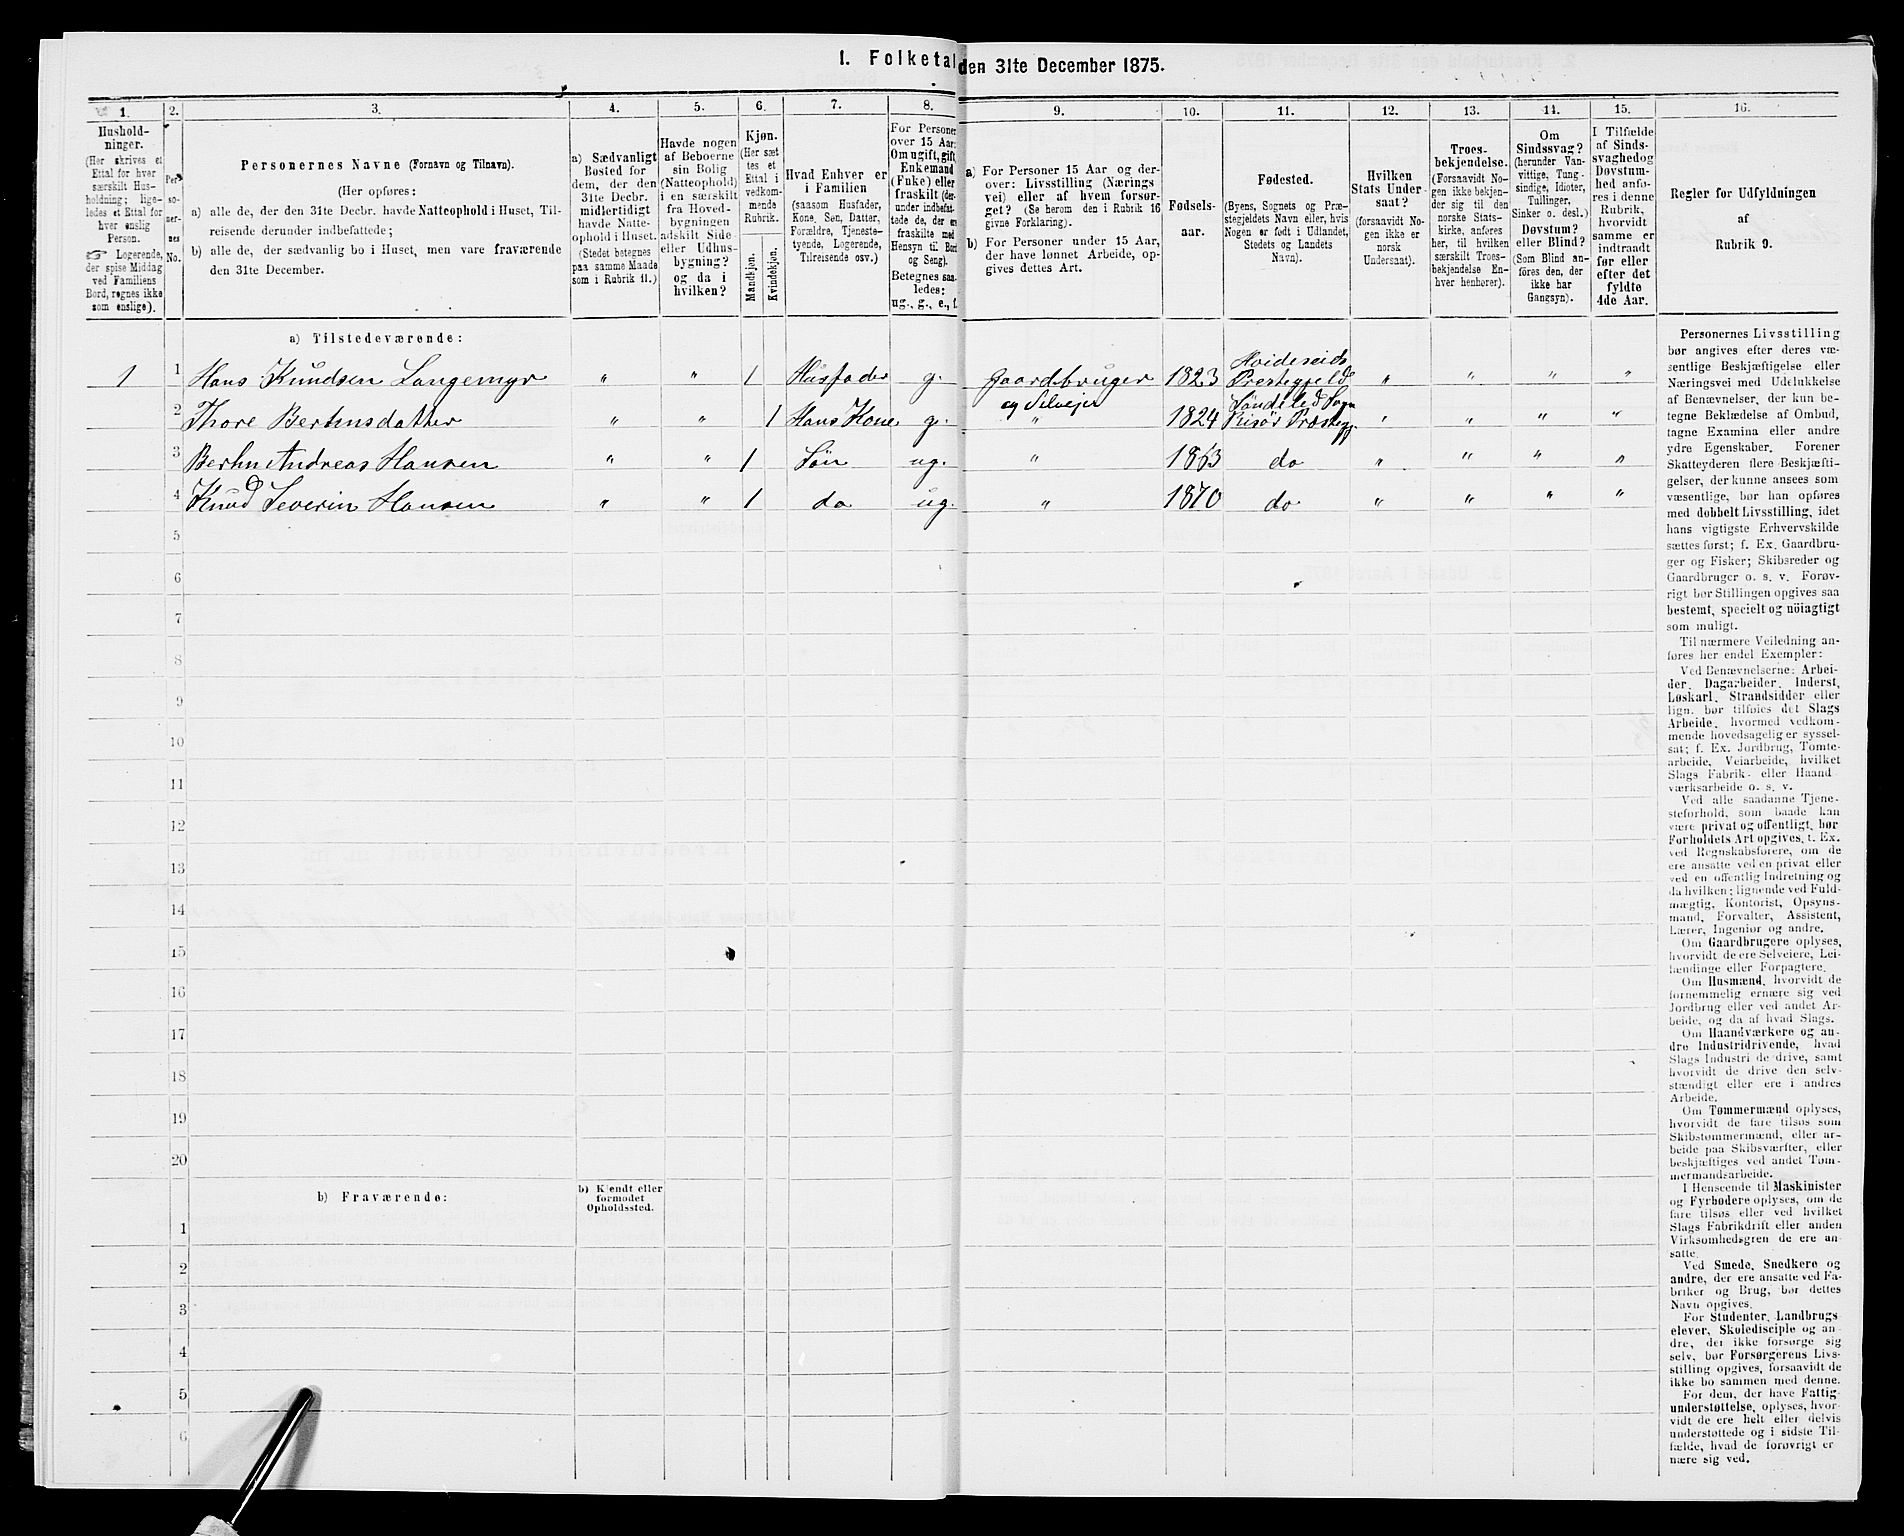 1. Folketal den 31te December 1875.
1.
2.
3.
4.
5.
6.
7.
8.
9.
10.
11.
12.
13.
14.
15.
16.
Hushold-
ninger.
(Her skrives et
Ettal for hver
særskilt Hus-
holdning; lige-
ledes et Ettal for
hver enslig
Person.
☞ Logerende,
der spise Middag
ved Familiens
Bord, regnes ikke
som enslige).
Per-
so-
ner-
nes
No.
Personernes Navne (Fornavn og Tilnavn).
(Her opføres:
a) alle de, der den 31te Decbr. havde Natteophold i Huset, Til-
reisende derunder indbefattede;
b) alle de, der sædvanlig bo i Huset, men vare fraværende
den 31te December.
a) Sædvanligt
Bosted for
dem, der den
31te Decbr.
midlertidigt
havde Natte-
ophold i Huset.
(Stedet betegnes
paa samme Maade
som i Rubrik 11.)
Havde nogen
af Beboerne
sin Bolig
(Natteophold)
i en særskilt
fra Hoved-
bygningen
adskilt Side-
eller Udhus-
bygning?
og da i
hvilken?
Kjøn.
(Her sæt-
tes et
Ettal i
vedkom-
mende
Rubrik.
Mandkjøn.
Kvindekjøn.
Hvad Enhver er
i Familien
(saasom Husfader,
Kone, Søn, Datter,
Forældre, Tjeneste-
tyende, Logerende,
Tilreisende osv.)
For Personer
over 15 Aar:
Om ugift, gift,
Enkemand
(Enke) eller
fraskilt (der-
under indbefat-
tede de, der ere
fraskilte med
Hensyn til Bord
og Seng).
Betegnes saa-
ledes:
ug., g., e., f.
a) For Personer 15 Aar og der-
over: Livsstilling (Nærings
vei) eller af hvem forsør-
get? (Se herom den i Rubrik 16
givne Forklaring).
b) For Personer under 15 Aar,
der have lønnet Arbeide, op-
gives dettes Art.
Fødsels-
aar.
Fødested.
(Byens, Sognets og Præ-
stegjeldets Navn eller, hvis
Nogen er født i Udlandet,
Stedets og Landets
Navn).
Hvilken
Stats Under-
saat?
(forsaavidt No-
gen ikke er
norsk
Undersaat).
Troes-
bekjendelse.
(Forsaavidt No-
gen ikke bekjen-
der sig til den
norske Stats-
kirke, anføres
her, til hvilken
særskilt Troes-
bekjendelse En-
hver henhører).
Om
Sindssvag?
(herunder Van-
vittige, Tung-
sindige, Idioter,
Tullinger,
Sinker o. desl.)
Døvstum?
eller Blind?
(Som Blind an-
føres den, der
ikke har
Gangsyn).
I Tilfælde
af Sinds-
svaghed og
Døvstum-
hed anfø-
res i denne
Rubrik,
hvorvidt
samme er
indtraadt
før eller
efter det
fyldte
4de Aar.
Regler for Udfyldningen
af
Rubrik 9.
a) Tilstedeværende:
1 1 Hans Knudsen Langemyr " " 1 Husfader g. Gaardbruger og Selvejer 1823 Hvideseids Prestegjeld " " " "
2 Thore Berthnsdatter " " 1 Hans Kone g. " 1824 Søndeled Sogn Risør Præstegj. " " " "
3 Berthn Andreas Hansen " " 1 Søn ug. " 1863 do " " " "
4 Knud Severin Hansen " " 1 do ug. " 1870 do " " " "
5
6
7
8
9
10
11
12
13
14
15
16
17
18
19
20
b) Fraværende:
b) Kjendt eller
formodet
Opholdssted.
1
2
3
4
5
6
Personernes Livsstilling
bør angives efter deres væ-
sentlige Beskjæftigelse eller
Næringsvei med Udelukkelse
af Benævnelser, der kun be-
tegne Beklædelse af Ombud,
tagne Examina eller andre
ydre Egenskaber. Forener
Skatteyderen flere Beskjæfti-
gelser, der kunne ansees som
væsentlige, bør han opføres
med dobbelt Livsstilling, idet
hans vigtigste Erhvervskilde
sættes først; f. Ex. Gaardbru-
ger og Fisker; Skibsreder og
Gaardbruger o. s. v. Forøv-
rigt bør Stillingen opgives saa
bestemt, specielt og nöiagtigt
som muligt.
Til nærmere Veiledning an-
føres her endel Exempler:
Ved Benævnelserne: Arbei-
der, Dagarbeider, Inderst,
Løskarl, Strandsidder eller
lign. bør tilføies det Slags
Arbeide, hvormed vedkom-
mende hovedsagelig er syssel-
sat; f. Ex. Jordbrug, Tomte-
arbeide, Veiarbeide, hvilket
Slags Fabrik- eller Haand-
værksarbeide o. s. v.
Ved alle saadanne Tjene-
steforhold, som baade kan
være privat og offentligt, bør
Forholdets Art opgives, t. Ex.
ved Regnskabsførere, om de
ere ansatte ved en privat eller
ved en offentlig Indretning og
da hvilken; lignende ved Fuld-
mægtig, Kontorist, Opsyns-
mand, Forvalter, Assistent,
Lærer, Ingeniør og andre.
Om Gaardbrugere oplyses,
hvorvidt de ere Selveiere, Lei-
lændinge eller Forpagtere.
Om Husmænd, hvorvidt de
fornemmelig ernære sig ved
Jordbrug eller ved andet Ar-
beide, og da af hvad Slags.
Om Haandværkere og an-
dre Industridrivende, hvad
Slags Industri de drive, samt
hvorvidt de drive den selv-
stændigt eller ere i andres
Arbeide.
Om Tømmermænd oplyses,
hvorvidt de fare tilsøs som
Skibstømmermænd, eller ar-
beide paa Skibsværfter, eller
beskjæftiges ved andet Tøm-
mermandsarbeide.
I Henseende til Maskinister
og Fyrbødere oplyses, om de
fare tilsøs eller ved hvilket
Slags Fabrikdrift eller anden
Virksomhedsgren de ere an-
satte.
Ved Smede, Snedkere og
andre, der ere ansatte ved Fa-
briker og Brug, bør dettes
Navn opgives.
For Studenter, Landbrugs-
elever, Skoledisciple og an-
dre, der ikke forsørge sig
selv, bør Forsørgerens Livs-
stilling opgives, forsaavidt de
ikke bo sammen med denne.
For dem, der have Fattig-
understøttelse, oplyses, hvor-
vidt de ere helt eller delvis
understøttede og i sidste Til-
fælde, hvad de forøvrigt er-
nære sig ved.